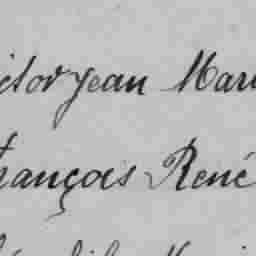 ictor Jean Mari
François René